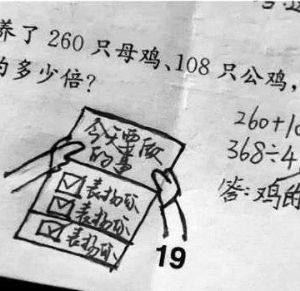 养了 260 只母鸡、108 只公鸡，
的多少倍？
260+10
368÷4
答：鸡的
今天要做
的事
☑表扬你
☑表扬你
☑表扬你
19